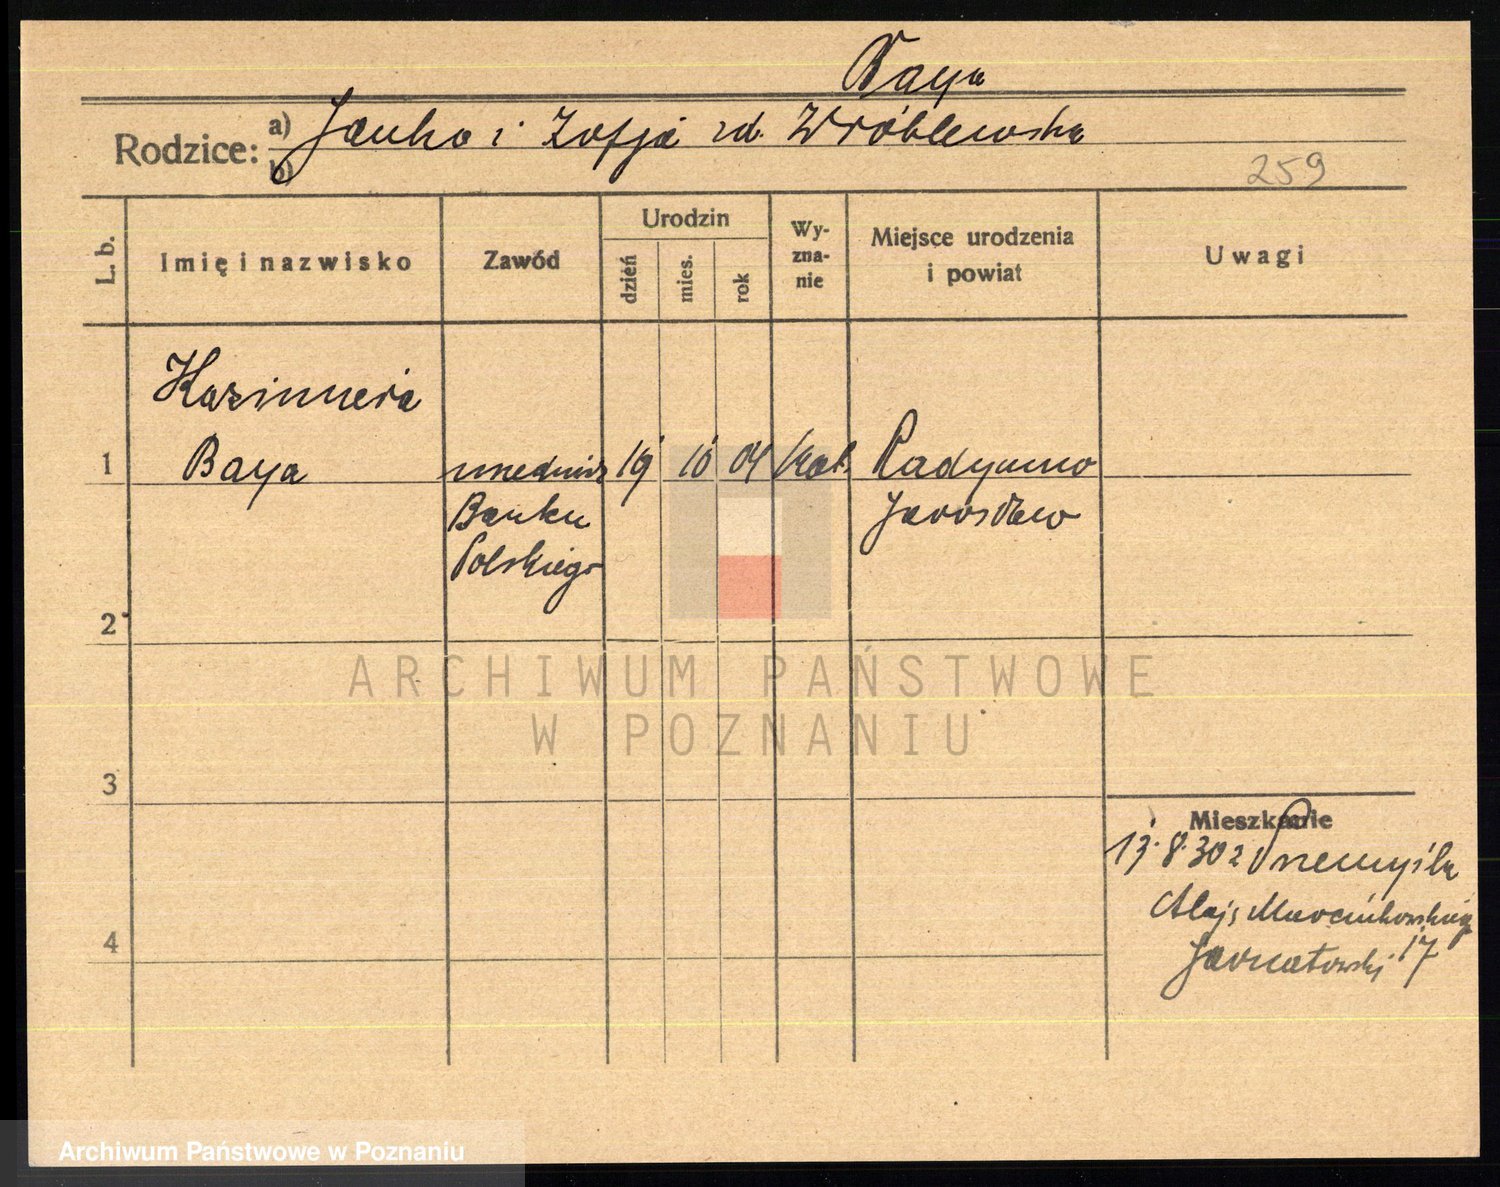 Baya
Rodzice: a) Janko i Zofja zd. Wróblewska
b)
259
L. b.
Imię i nazwisko
Zawód
Urodzin
dzień
mies.
rok
Wy-
zna-
nie
Miejsce urodzenia
i powiat
Uwagi
Kazimiera
1 Baya urzędnicz 19 10 04 kat. Radymno
Banku Jarosław
Polskiego
2
ARCHIWUM PAŃSTWOWE
W POZNANIU
3
Mieszkanie
13.8.30 z Przemyśla
Alejs Marcinkowskieg
17
4
Archiwum Państwowe w Poznaniu